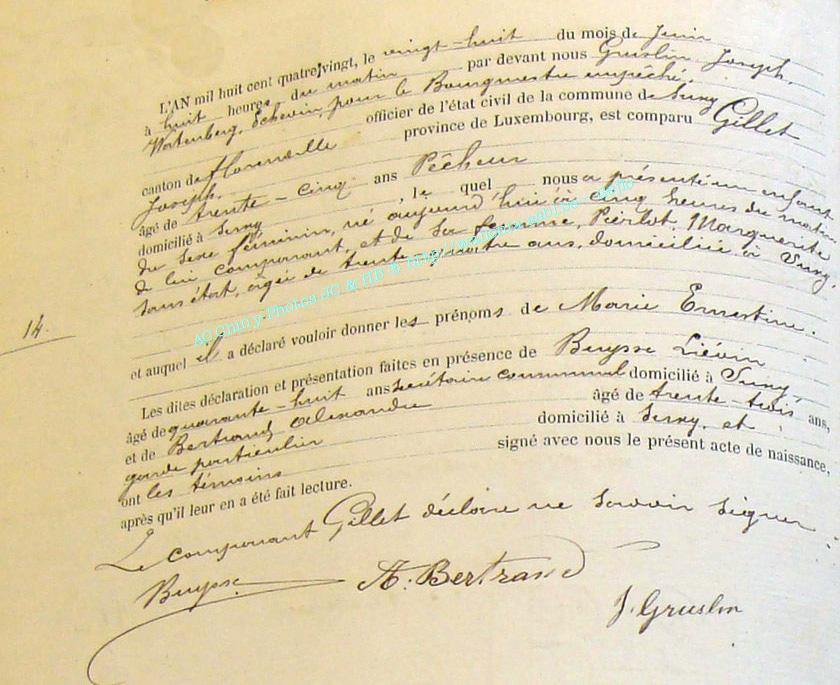 L'AN mil huit cent quatre-vingt, le vingt-huit du mois de Juin
à huit heures du matin par devant nous Gruslin Joseph,
Wartenberg, Echevin, pour le Bourgmestre empêché,
officier de l'état civil de la commune de Suxy
canton de Florenville province de Luxembourg, est comparu Gillet
Joseph,
âgé de trente-cinq ans Pêcheur
domicilié à Suxy, le quel nous a présenté un enfant
du sexe féminin, né aujourd'hui à cinq heures du matin
de lui comparant, et de sa femme, Pierlot, Marguerite
sans état, âgée de trente quatre ans, domiciliée à Suxy
14.
et auquel il a déclaré vouloir donner les prénoms de Marie Ernestine.
Les dites déclaration et présentation faites en présence de Buysse Liévin
âgé de quarante-huit ans secrétaire communal domicilié à Suxy
et de Bertrand, Alexandre âgé de trente-trois ans,
garde particulier domicilié à Suxy, et
ont les témoins signé avec nous le présent acte de naissance,
après qu'il leur en a été fait lecture.
Le comparant Gillet déclare ne savoir signer
Buysse A. Bertrand
J. Gruslin
AC Chiny - Photos JC & HD ©